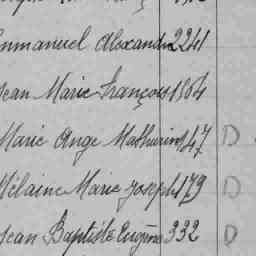 Emmanuel Alexandre 2241
Jean Marie François 1864
Marie Ange Mathurin 147 D
Mélaine Marie Joseph 179 D
Jean Baptiste Eugène 332 D